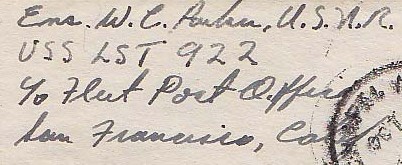 Ens. W. C. Parker, U.S.N.R.
USS LST 922
c/o Fleet Post Office
San Francisco, Calif
OCT